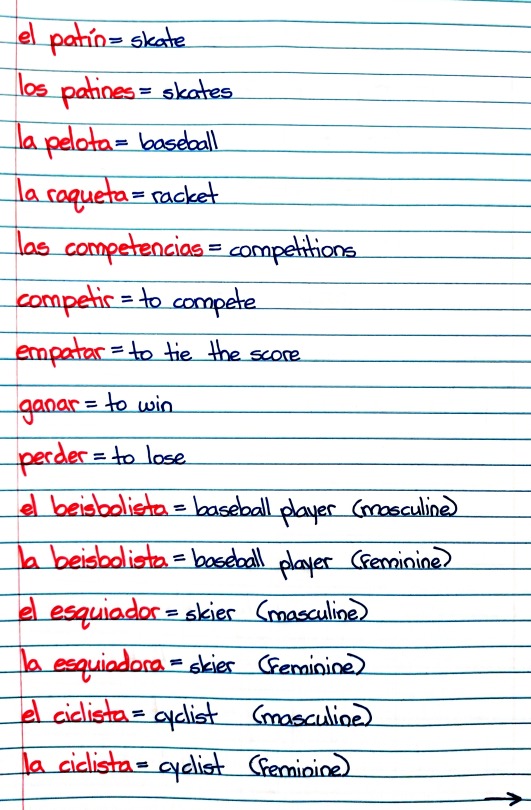 el patín = skate
los patines = skates
la pelota = baseball
la raqueta = racket
las competencias = competitions
competir = to compete
empatar = to tie the score
ganar = to win
perder = to lose
el beisbolista = baseball player (masculine)
la beisbolista = baseball player (feminine)
el esquiador = skier (masculine)
la esquiadora = skier (feminine)
el ciclista = cyclist (masculine)
la ciclista = cyclist (feminine)
→